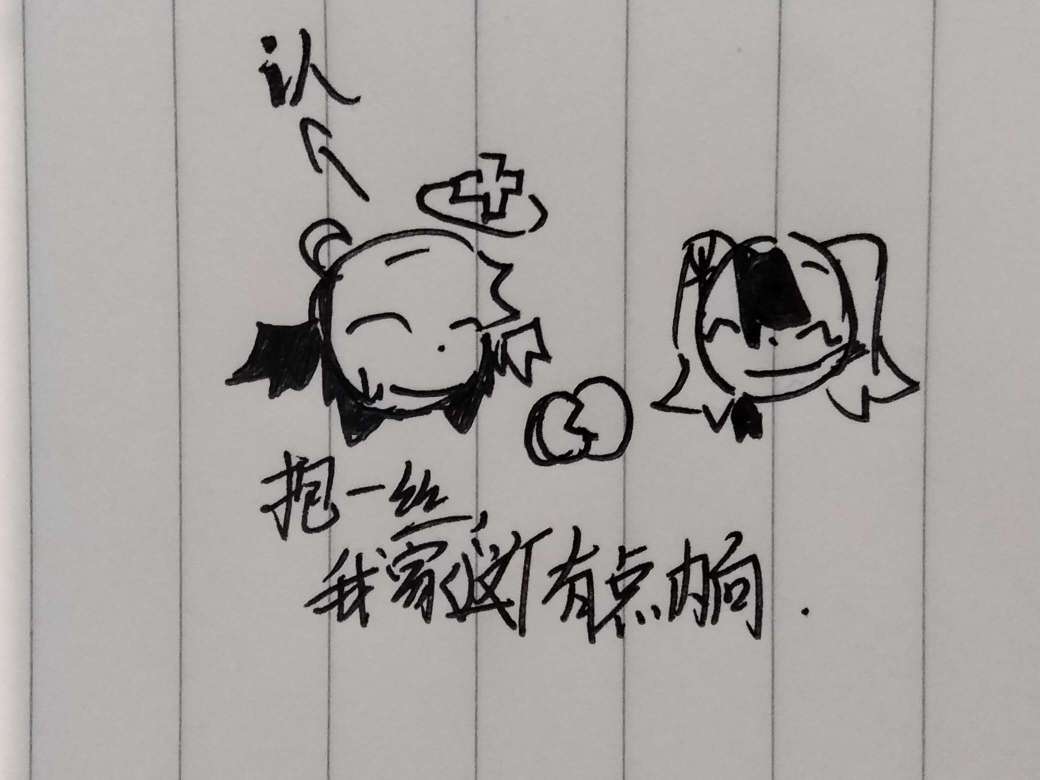 认
抱一丝，
我家这个有点内向.